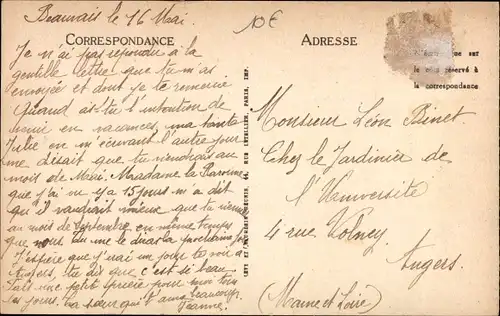 Beauvais le 16 Mai.
10€
CORRESPONDANCE
ADRESSE
Je n'ai pas répondu à la
gentille lettre que tu m'as
envoyée et dont je te remercie
Quand as-tu l'intention de
venir en vacances, ma tante
Julie en m'écrivant l'autre jour
me disait que tu viendrais au
mois de Mai. Madame la Baronne
que j'ai vu ya 15 jours m'a dit
qu'il vaudrait mieux que tu viennes
au mois de septembre en même temps
que nous. Tu me le diras la prochaine fois
J'espère que j'irai un jour te voir à
Angers, tu dis que c'est si beau
Fait une petite prière pour moi tous
les jours. Ta sœur qui t'aime beaucoup
Jeanne.
LEVY ET NEURDEIN RÉUNIS, 44, RUE LETELLIER, PARIS, IMP.
que sur
le côté réservé à
la correspondance
Monsieur Léon Binet
Chez le Jardinier de
l'Université
4 rue Volney
Angers.
(Maine et Loire)